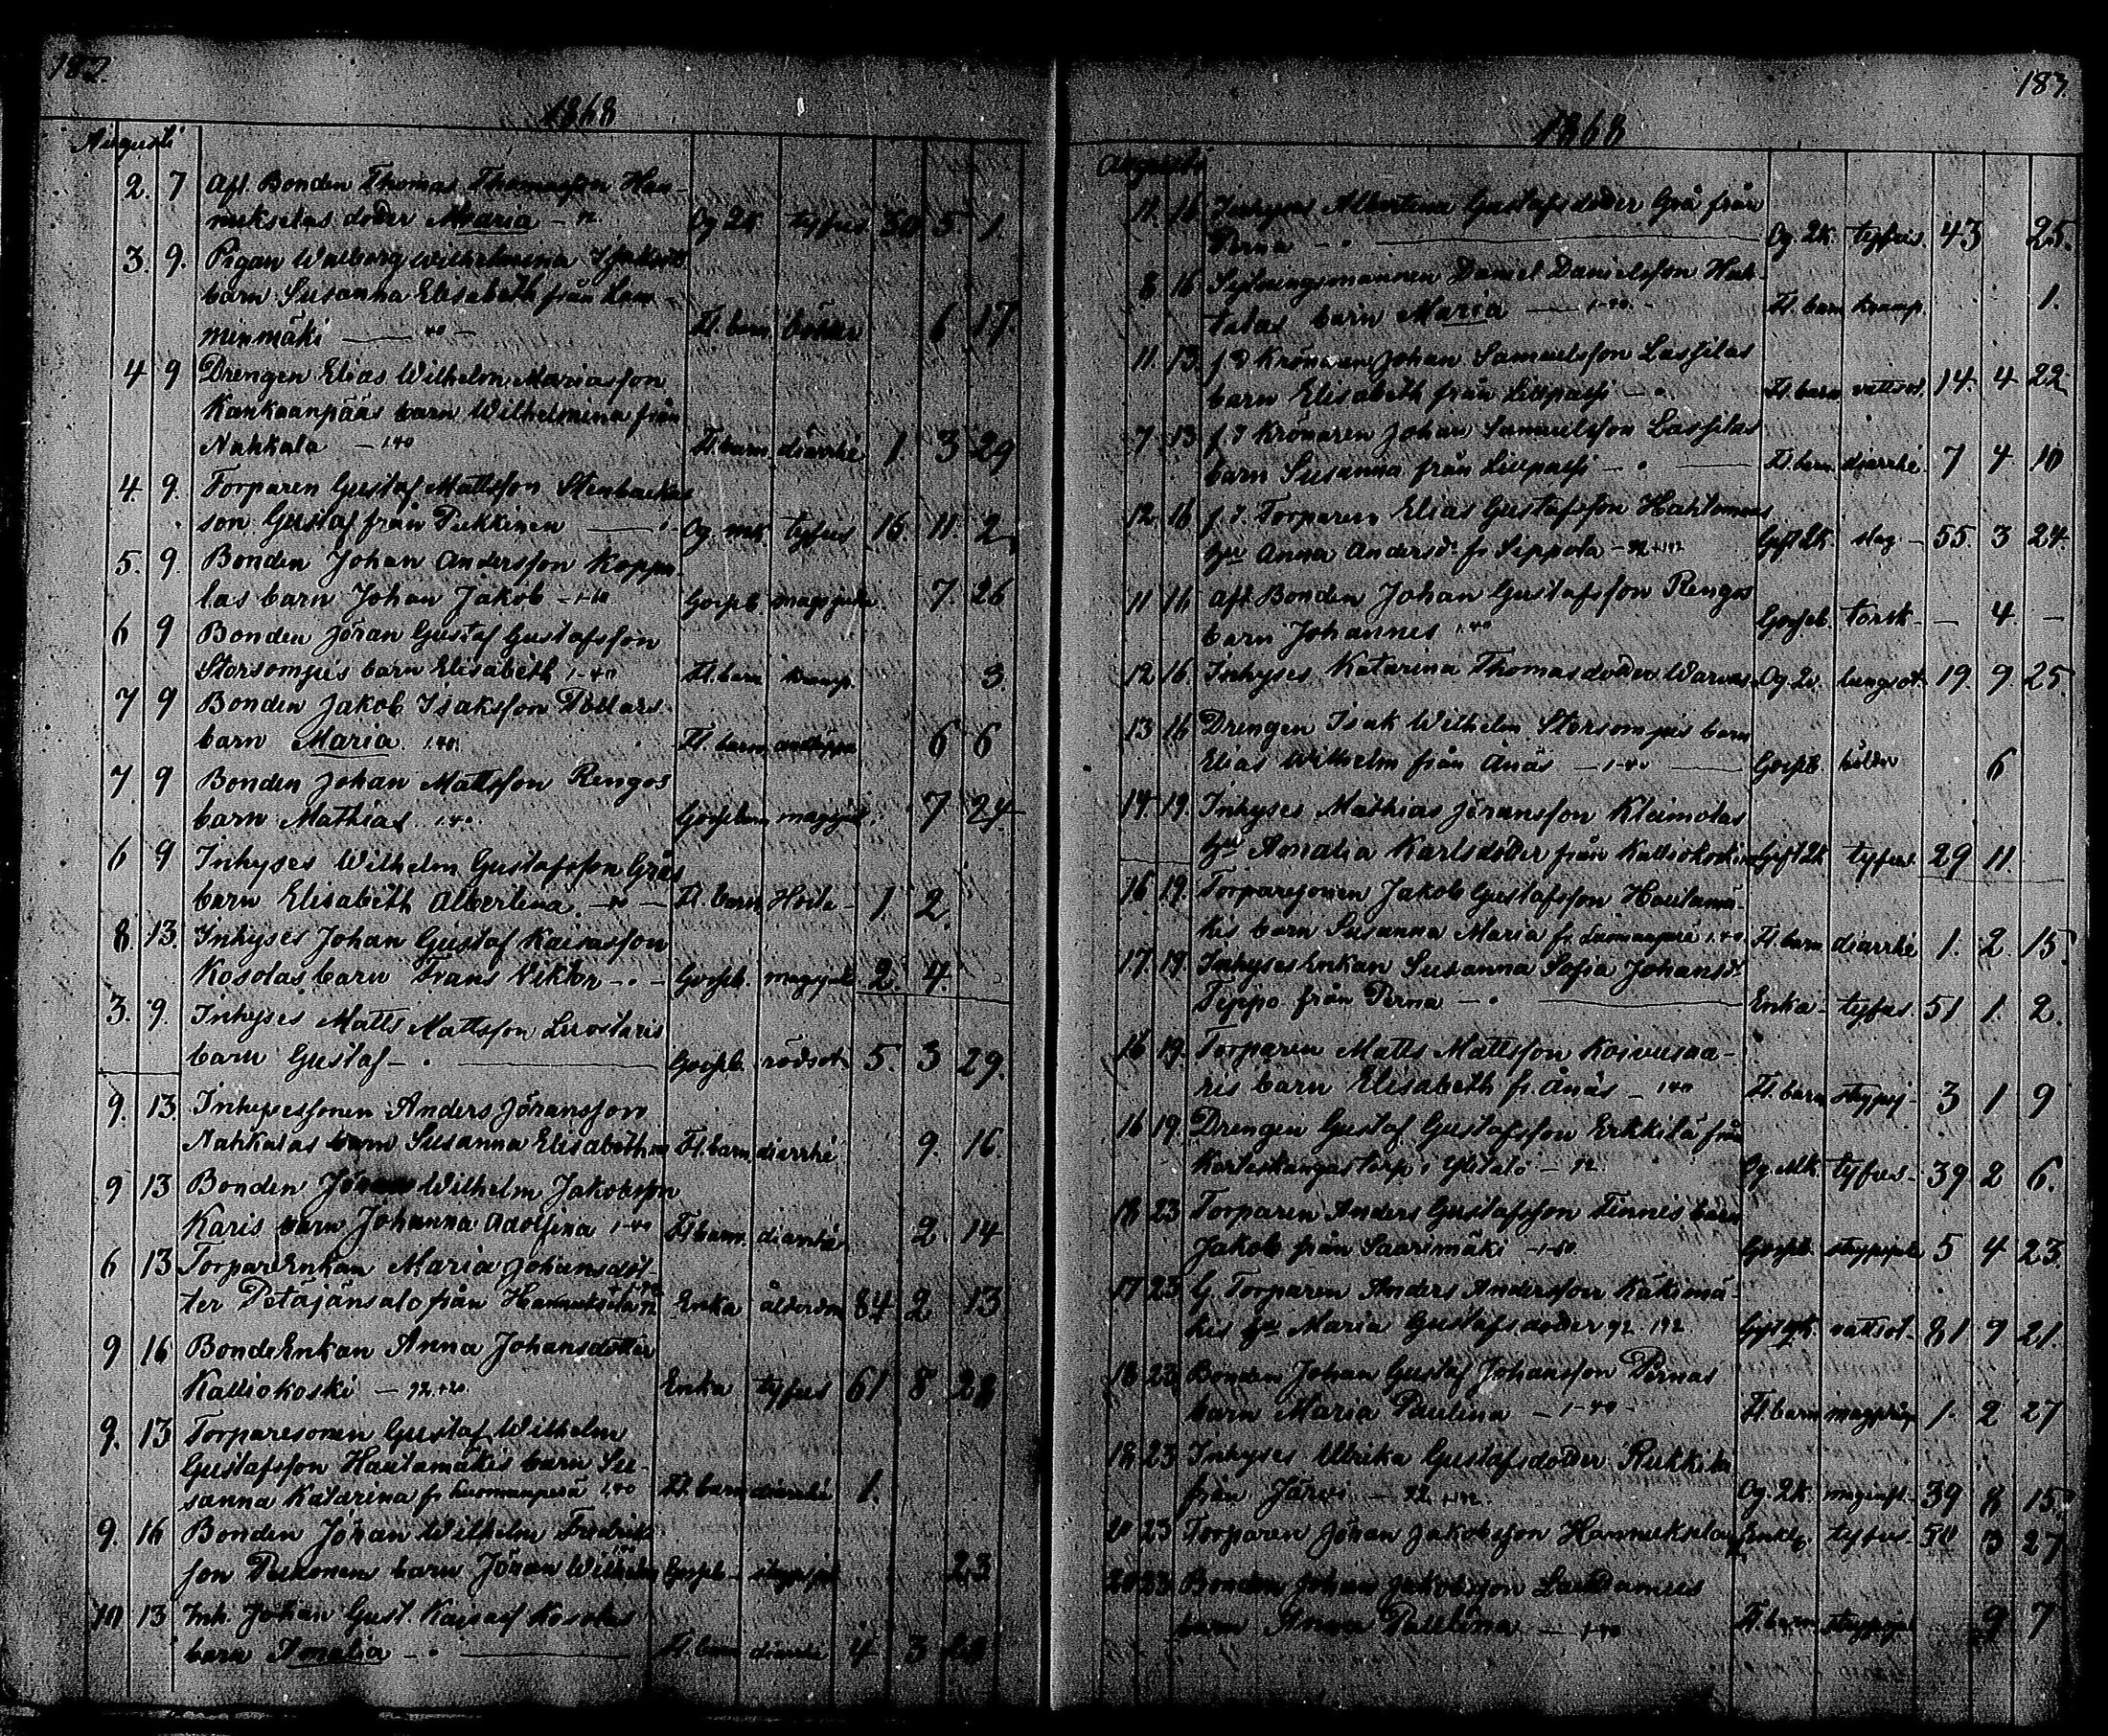 182.
1868
Augusti
2. 7 Aft. Bonden Thomas Thomasson Han-
nukselas dotter Maria - 92. Og. Qk. tyfus. 50 5. 1.
3. 9. Pigan Walborg Wilhelmina
barn Susanna Elisabeth från Lam-
minmäki Fl. barn bölder 6 17.
4 9 Drengen Elias Wilhelm Mariasson
Kankaanpääs barn Wilhelmina från
Nahkala - 1.40 Fl. barn diarrhé 1. 3 29
4. 9. Torparen Gustaf Mattsson Stenbackas
son Gustaf från Pukkinen Og. mk. tyfus 16. 11. 2
5. 9. Bonden Johan Andersson Koppe-
las barn Johan Jakob Gosseb. magsjuka 7. 26
6 9 Bonden Jöran Gustaf Gustafsson
Storsompis barn Elisabeth 1-40 Fl. barn kramp. 3.
7 9 Bonden Jakob Isaksson
barn Maria 1.40. Fl. barn 6 6
7. 9 Bonden Johan Mattsson Rengos
barn Mathias 1.40. Gossebarn magsjuk. 7 24
6 9 Inhyses Wilhelm Gustafsson Grås
barn Elisabeth Albertina Fl. barn Hosta 1. 2.
8. 13. Inhyses Johan Gustaf Kaisasson
Kosolas barn Frans Viktor Gosseb. magsjuk 2. 4.
3. 9. Inhyses Matts Mattsson Luostaris
barn Gustaf Gosseb. rödsot 5. 3 29.
9. 13. Inhysessonen Anders Jöransson
Nahkalas barn Susanna Elisabeth Fl. barn diarrhé. 9. 16.
9 13 Bonden Jöran Wilhelm Jakobsson
Karis barn Johanna Adolfina 1-40 Fl. barn. diarrhé 2. 14
6 13 TorpareEnkan Maria Johansdot-
ter Petäjänsalo från Hannuksela Enka ålderdom 84 2 13
9 16 BondeEnkan Anna Johansdotter
Kalliokoski Enka tyfus 61 8 28
9. 13 Torparesonen Gustaf Wilhelm
Gustafsson Hautamäkis barn Su-
sanna Katarina fr. Luomanperä 1.40 Fl. barn diarrhé 1.
9. 16 Bonden Jöran Wilhelm Fredriks-
son barn Jöran Wilhelm Gosseb. 23
10 13 Inh. Johan Gust. Kaisass Kosolas
barn Amalia Fl. barn diarrhé 4 3
183.
1868
Augusti
11. 16 Inhyses Albertina Gustafsdotter Grå från
Perna Og. Qk. tyfus. 43 25.
8 16 Sexloungsmannen Daniel Danielsson Huh-
talas barn Maria - 1-40. Fl. barn kramp. 1.
11. 13. f.d. Krönaren Johan Samuelsson Lassilas
barn Elisabeth från Liipassi Fl. barn vattsot. 14. 4 22
7 13 f.d. Krönaren Johan Samuelsson Lassilas
barn Susanna från Liipassi Fl. barn diarrhé. 7 4 10
12 16 f.d. Torparen Elias Gustafsson Hahtomas
hu Anna Andersdr. fr. Seppola Gift Qk. slag - 55. 3 24.
11 16 Aft. Bonden Johan Gustafsson Rengos
barn Johannes 1.40 Gosseb. torsk - - 4. -
12 16. Inhyses Katarina Thomasdotter Og. Qv. lungsot. 19. 9. 25.
13 16 Drengen Isak Wilhelm Storsompis barn
Elias Wilhelm från Ånäs - 1-40 Gosseb. bölder 6
14. 19. Inhyses Mathias Jöransson Kleimolas
hu Amalia Karlsdotter från Kalliokoski Gift Qk. tyfus. 29 11.
16 19. Torparesonen Jakob Gustafsson Hautamä-
kis barn Susanna Maria fr. Luomanperä 1.40 Fl. barn diarrhé 1. 2. 15.
17. 19. InhysesEnkan Susanna Sofia Johansdr.
Teppo från Perna Enka tyfus 51. 1. 2.
16 19. Torparen Matts Mattsson Koivusaa-
ris barn Elisabeth fr. Ånäs - 1.40 Fl. barn strypsj. 3 1 9
16 19. Drengen Gustaf Gustafsson Erkkilä från
torp i Ylitalo - 92. Og. Mk. tyfus - 39 2 6.
18 23 Torparen Anders Gustafsson Tennis barn
Jakob från Saarimäki Gosseb. strypsjuk 5 4 23.
17 23 G. Torparen Anders Andersson Käkimä-
kis hu Maria Gustafsdotter 92. 192. vattsot. 81 9 21.
18 23 Bonden Johan Gustaf Johansson Pernas
barn Maria Paulina - 1-40 - Fl. barn magsjuk 1. 2 27
18 23 Inhyses Ulrika Gustafsdotter Rukkila
från Järvi Og. Qk. 39 8 15.
20 23 Torparen Jöran Jakobsson Hannukselas Enkl. tyfus. 50 3 27
20 23 Bonden Johan Jakobsson
barn Anna Paulina - 1-40 Fl. barn strypsjuk 9 7